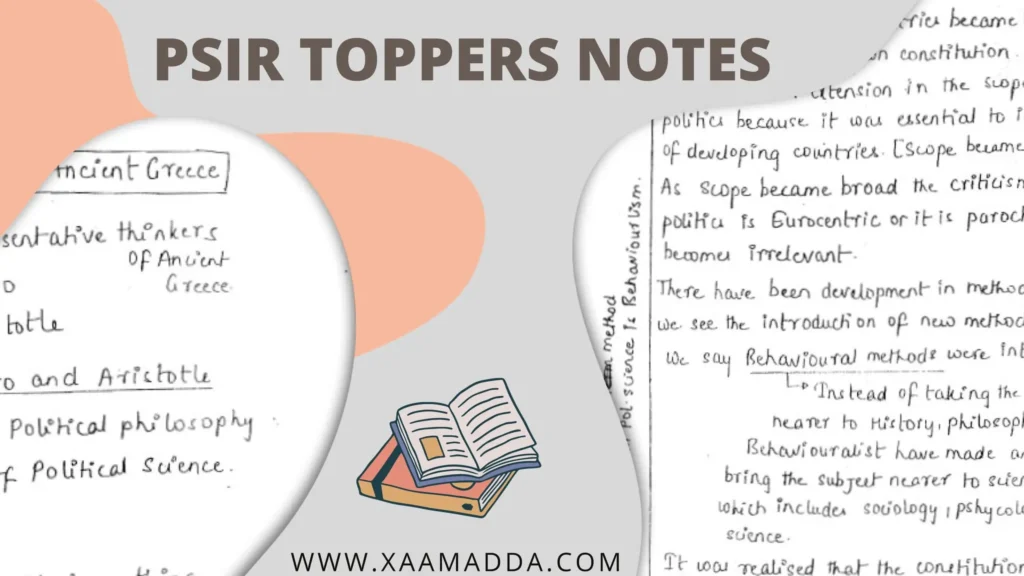 PSIR TOPPERS NOTES
ncient Greece
sentative thinkers
Of Ancient
Greece
totle
o and Aristotle
Political philosophy
of Political Science.
tries became
on constitution.
tension in the scope
politics because it was essential to i
of developing countries. [Scope became
As scope became broad the criticism
politics is Eurocentric or it is paroch
becomes irrelevant.
There have been development in method
we see the introduction of new method
we say Behavioural methods were int
Instead of taking the
nearer to History, philosoph
Behaviouralist have made a
bring the subject nearer to scien
which includes sociology, pshycolo
science.
It was realised that the constitution
method
Pol. science is Behaviourlism.
WWW.XAAMADDA.COM